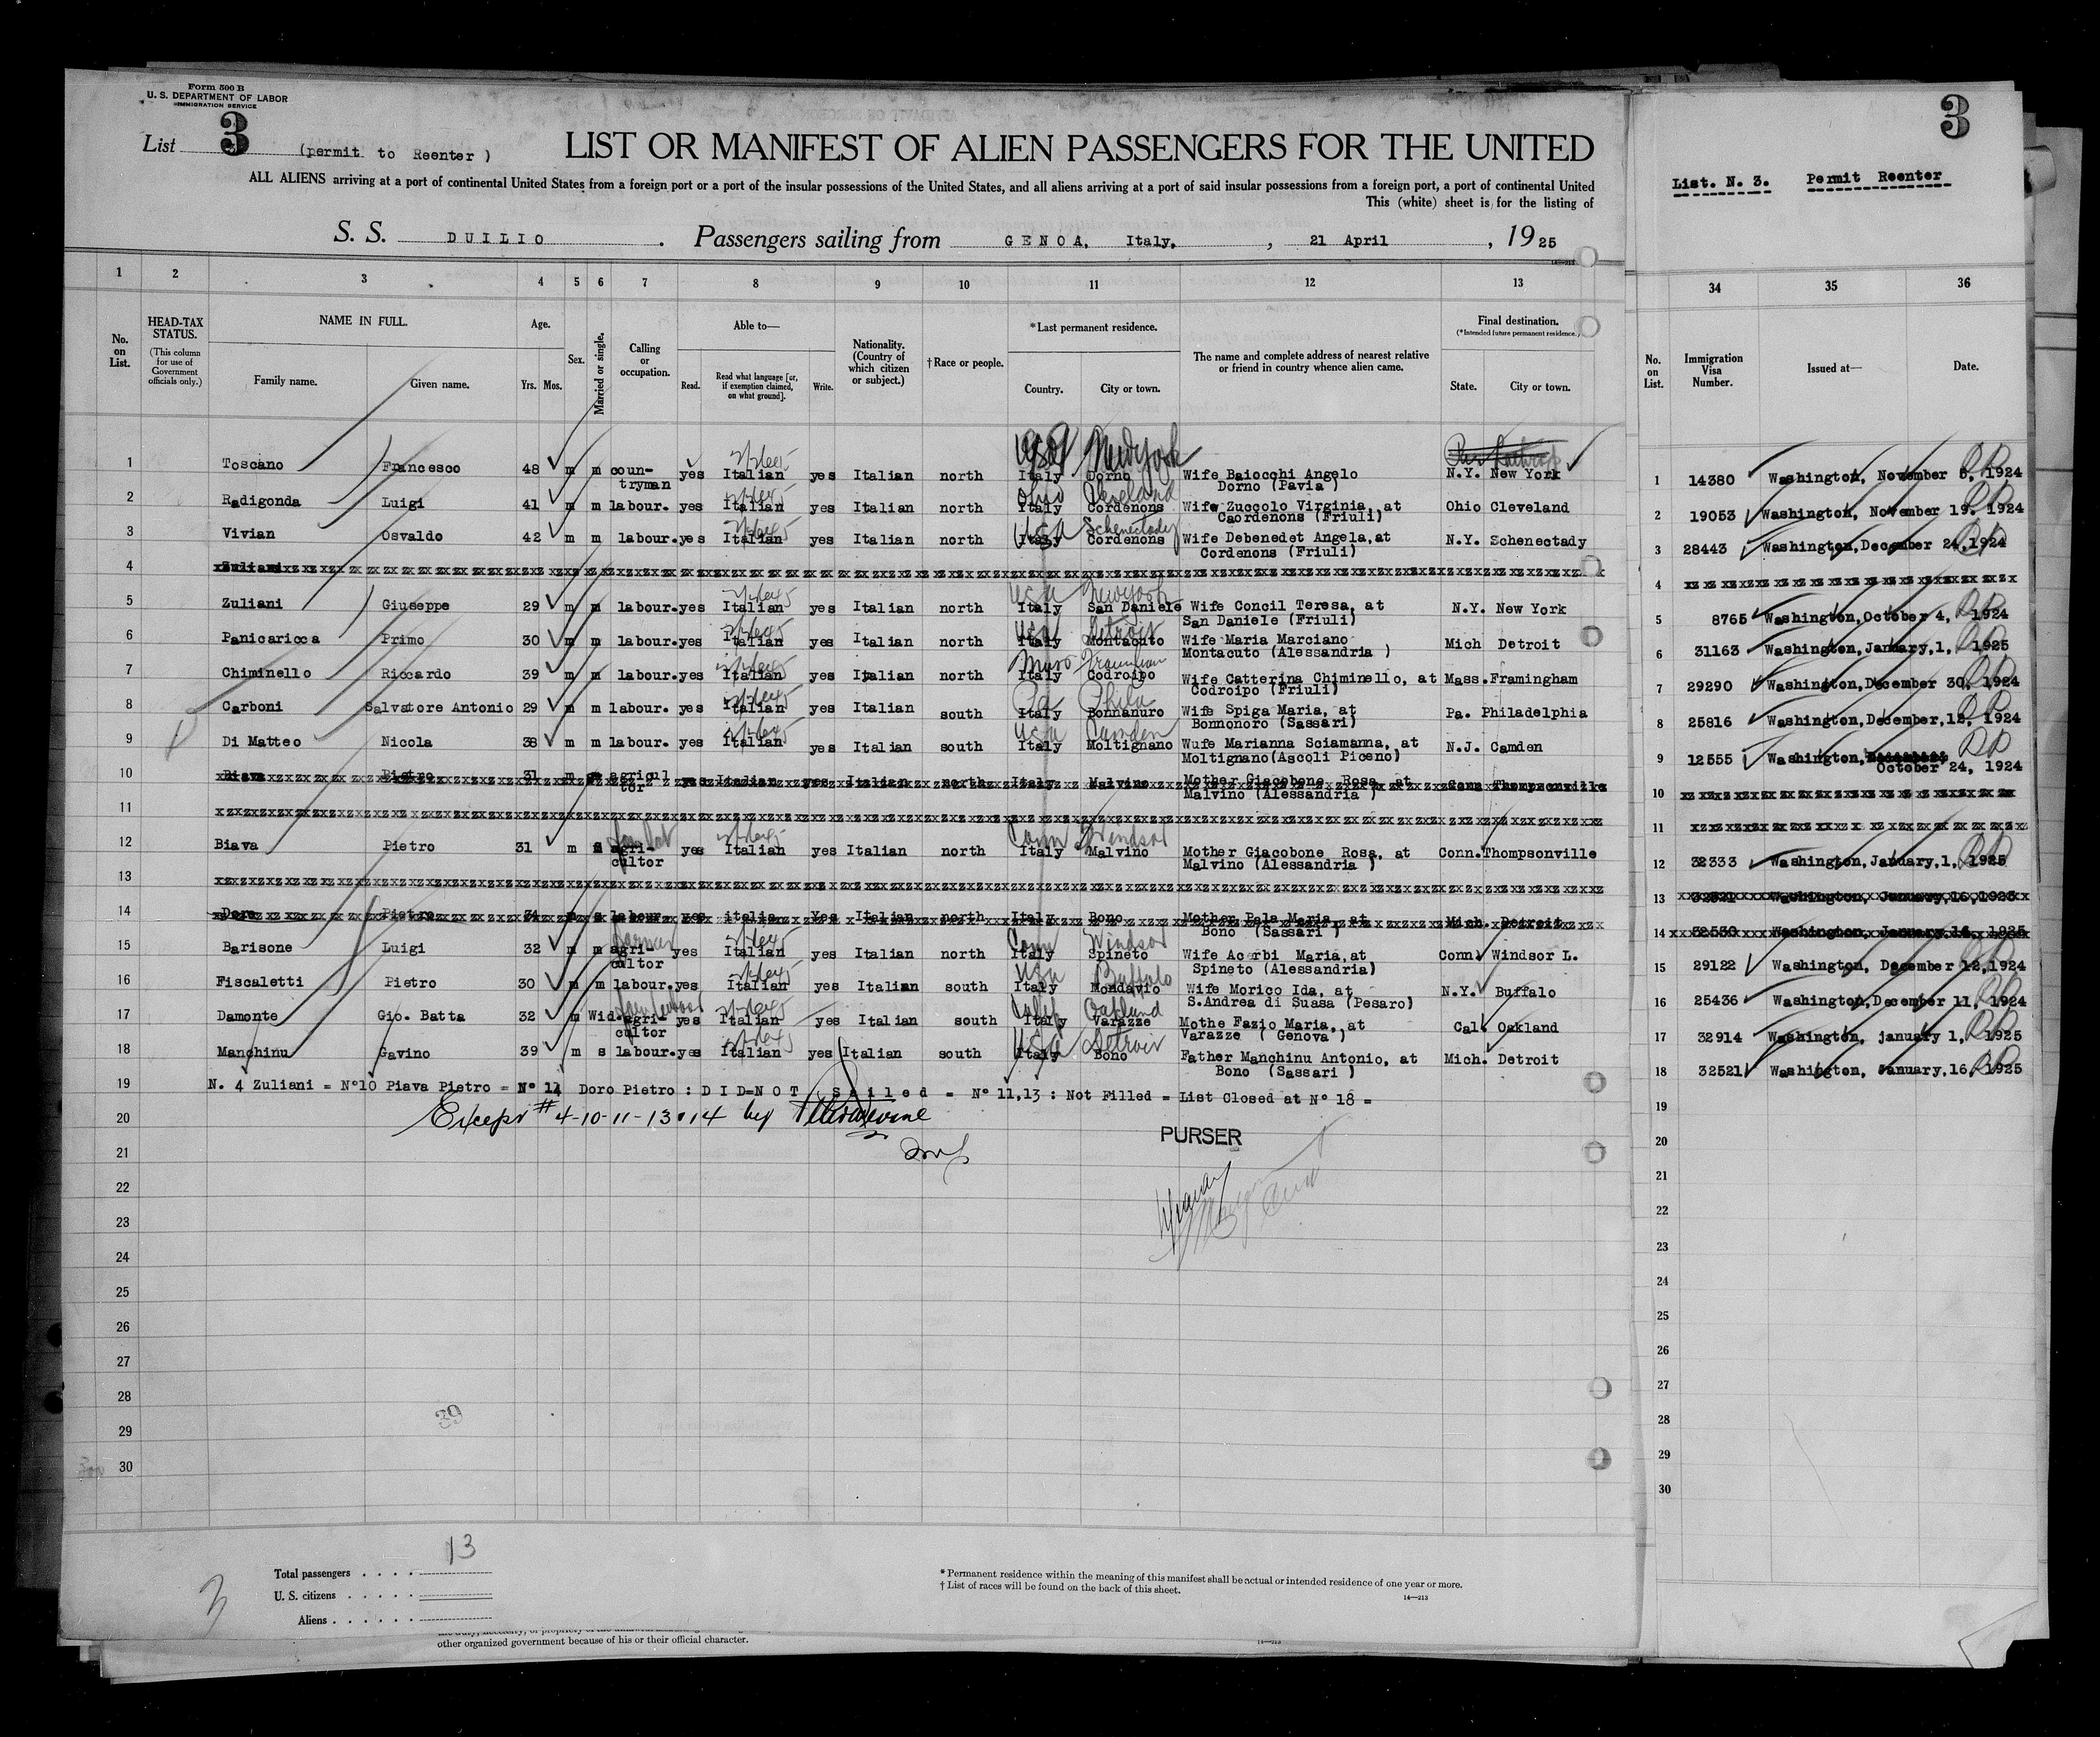 Form 500 B
U. S. DEPARTMENT OF LABOR
IMMIGRATION SERVICE
List 3 (permit to Reenter )
LIST OR MANIFEST OF ALIEN PASSENGERS FOR THE UNITED
ALL ALIENS arriving at a port of continental United States from a foreign port or a port of the insular possessions of the United States, and all aliens arriving at a port of said insular possessions from a foreign port, a port of continental United
This (white) sheet is for the listing of
S. S. DUILIO. Passengers sailing from GENOA, Italy, , 21 April , 1925
3
List. N. 3. Permit Reenter
1 2 3 4 5 6 7 8 9 10 11 12 13
34 35 36
No. on List.
HEAD-TAX STATUS.
(This column for use of Government officials only.)
NAME IN FULL.
Family name. Given name.
Age.
Yrs. Mos.
Sex.
Married or single.
Calling or occupation.
Able to—
Read. Read what language [or, if exemption claimed, on what ground]. Write.
Nationality. (Country of which citizen or subject.)
†Race or people.
*Last permanent residence.
Country. City or town.
The name and complete address of nearest relative or friend in country whence alien came.
Final destination.
(*Intended future permanent residence.)
State. City or town.
No. on List.
Immigration Visa Number.
Issued at—
Date.
1 Toscano Francesco 48 m m coun-tryman yes Italian yes Italian north Italy Dorno Wife Baiocchi Angelo Dorno (Pavia ) N.Y. New York
USA New York
1 14380 Washington, November 5, 1924
2 Radigonda Luigi 41 m m labour. yes Italian yes Italian north Italy Cordenons Wife Zuccolo Virginia, at Caordenons (Friuli) Ohio Cleveland
Ohio Cleveland
2 19053 Washington, November 19. 1924
3 Vivian Osvaldo 42 m m labour. yes Italian yes Italian north Italy Cordenons Wife Debenedet Angela,at Cordenons (Friuli) N.Y. Schenectady
USA Schenectady
3 28443 Washington, December 24,1924
4 Zuliani
4
5 Zuliani Giuseppe 29 m m labour. yes Italian yes Italian north Italy San Daniele Wife Concil Teresa, at San Daniele (Friuli) N.Y. New York
USA New York
5 8765 Washington,October 4, 1924
6 Panicaricca Primo 30 m m labour. yes Italian yes Italian north Italy Montacuto Wife Maria Marciano Montacuto (Alessandria ) Mich Detroit
USA Detroit
6 31163 Washington,January,1, 1925
7 Chiminello Riccardo 39 m m labour. yes Italian yes Italian north Italy Codroipo Wife Catterina Chiminello, at Codroipo (Friuli) Mass.Framingham
7 29290 Washington,December 30, 1924
8 Carboni Salvatore Antonio 29 m m labour. yes Italian yes Italian south Italy Bonnanuro Wife Spiga Maria, at Bonnonoro (Sassari) Pa. Philadelphia
Pa Phila
8 25816 Washington,December,12, 1924
9 Di Matteo Nicola 38 m m labour. yes Italian yes Italian south Italy Moltignano Wufe Marianna Sciamanna, at Moltignano(Ascoli Piceno) N.J. Camden
USA Camden
9 12555 Washington, October 24, 1924
10 Biava Pietro 31 m s agricul tor yes Italian yes Italian north Italy Malvino Mother Giacobone Rosa, at Malvino (Alessandria ) Conn Thompsonville
10
11
11
12 Biava Pietro 31 m s agri-cultor yes Italian yes Italian north Italy Malvino Mother Giacobone Rosa, at Malvino (Alessandria ) Conn.Thompsonville
Conn Windsor
12 32333 Washington,January,1, 1925
13
13 32521 Washington, January,16,1925
14 Doro Pietro 31 m s labour. yes italia Yes Italian north Italy Bono Mother Pala Maria, at Bono (Sassari ) Mich. Detroit
14 32530 Washington, January,16, 1925
15 Barisone Luigi 32 m m agri-cultor yes Italian yes Italian north Italy Spineto Wife Acerbi Maria,at Spineto (Alessandria) Conn. Windsor L.
farmer Conn Windsor
15 29122 Washington, December 12,1924
16 Fiscaletti Pietro 30 m m labour. yes Italian yes Italian south Italy Mondavio Wife Morico Ida, at S.Andrea di Suasa (Pesaro) N.Y. Buffalo
USA Buffalo
16 25436 Washington,December 11, 1924
17 Damonte Gio. Batta 32 m Wid. agri-cultor yes Italian yes Italian south Italy Varazze Mothe Fazio Maria, at Varazze ( Genova ) Cal. Oakland
Calif Oakland
17 32914 Washington, january 1, 1925
18 Manchinu Gavino 39 m s labour. yes Italian yes Italian south Italy Bono Father Manchinu Antonio, at Bono (Sassari ) Mich. Detroit
USA Detroit
18 32521 Washington, January,16, 1925
19 N. 4 Zuliani = N°10 Piava Pietro = N° 14 Doro Pietro : D I D=N O T S a i l e d = N° 11,13 : Not Filled = List Closed at N° 18 =
19
20 Except # 4-10-11-13-14 by
PURSER
20
21
21
22
22
23
23
24
24
25
25
26
26
27
27
28
28
29
29
30
30
39
13
3
Total passengers . . . .
U. S. citizens . . . . .
Aliens . . . . . .
* Permanent residence within the meaning of this manifest shall be actual or intended residence of one year or more.
† List of races will be found on the back of this sheet.
14—213
other organized government because of his or their official character.